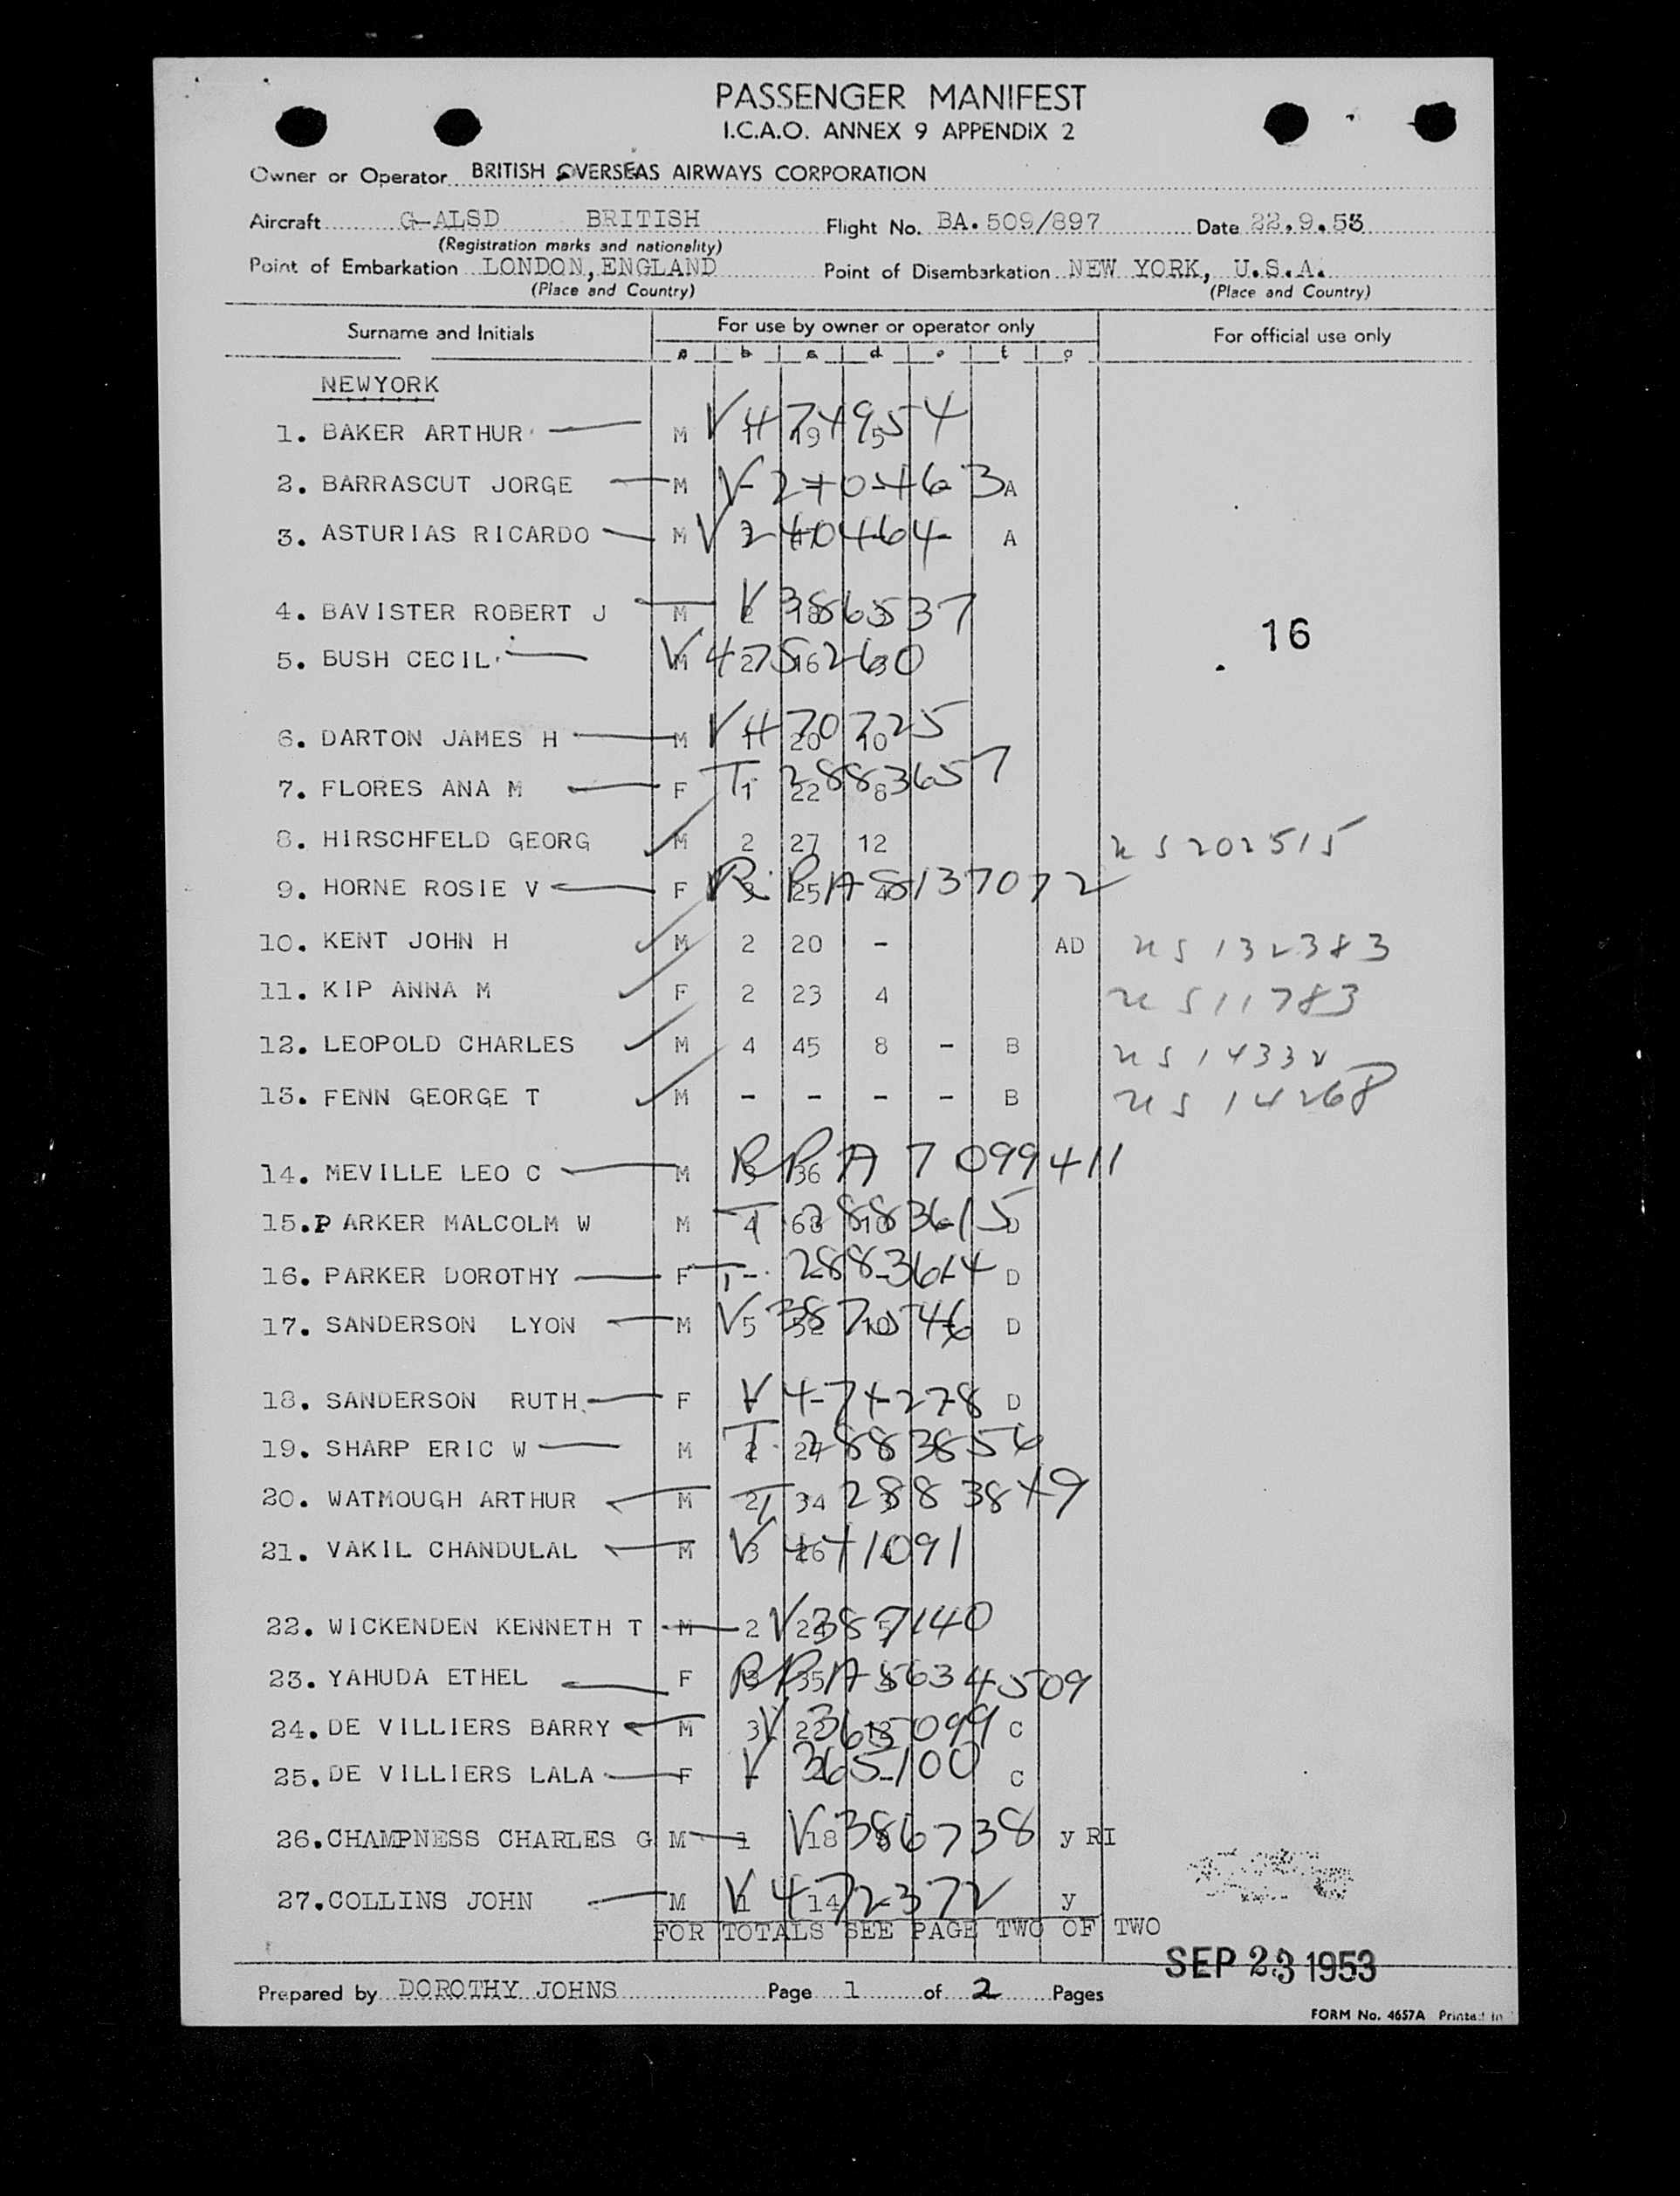 PASSENGER MANIFEST
I.C.A.O. ANNEX 9 APPENDIX 2
Owner or Operator BRITISH OVERSEAS AIRWAYS CORPORATION
Aircraft G-ALSD BRITISH Flight No. BA.509/897 Date 22.9.53
(Registration marks and nationality)
Point of Embarkation LONDON, ENGLAND Point of Disembarkation NEW YORK, U.S.A.
(Place and Country) (Place and Country)
Surname and Initials For use by owner or operator only For official use only
a b c d e f g
NEWYORK
1. BAKER ARTHUR M V 474954
2. BARRASCUT JORGE M V 240463 A
3. ASTURIAS RICARDO M V 240464 A
4. BAVISTER ROBERT J M V 386537
16
5. BUSH CECIL M V 475260
6. DARTON JAMES H M V 470725
7. FLORES ANA M F T 2883657
8. HIRSCHFELD GEORG M 2 27 12 US 202515
9. HORNE ROSIE V F R.P.A 8137072
10. KENT JOHN H M 2 20 - AD US 132383
11. KIP ANNA M F 2 23 4 US 11783
12. LEOPOLD CHARLES M 4 45 8 - B US 14332
13. FENN GEORGE T M - - - - B US 14268
14. MEVILLE LEO C M RPA 7099411
15. PARKER MALCOLM W M T 2883615 D
16. PARKER DOROTHY F T 2883614 D
17. SANDERSON LYON M V 387546 D
18. SANDERSON RUTH F V 474278 D
19. SHARP ERIC W M T 2883856
20. WATMOUGH ARTHUR M 2 34 T 2883849
21. VAKIL CHANDULAL M V 441091
22. WICKENDEN KENNETH T M 2 V 387140
23. YAHUDA ETHEL F RPA 5634509
24. DE VILLIERS BARRY M 3 V 365099 C
25. DE VILLIERS LALA F V 365100 C
26. CHAMPNESS CHARLES G M 1 18 V 386738 y RI
27. COLLINS JOHN M 1 14 V 472372 y
FOR TOTALS SEE PAGE TWO OF TWO
SEP 23 1953
Prepared by DOROTHY JOHNS Page 1 of 2 Pages
FORM No. 4657A Printed in